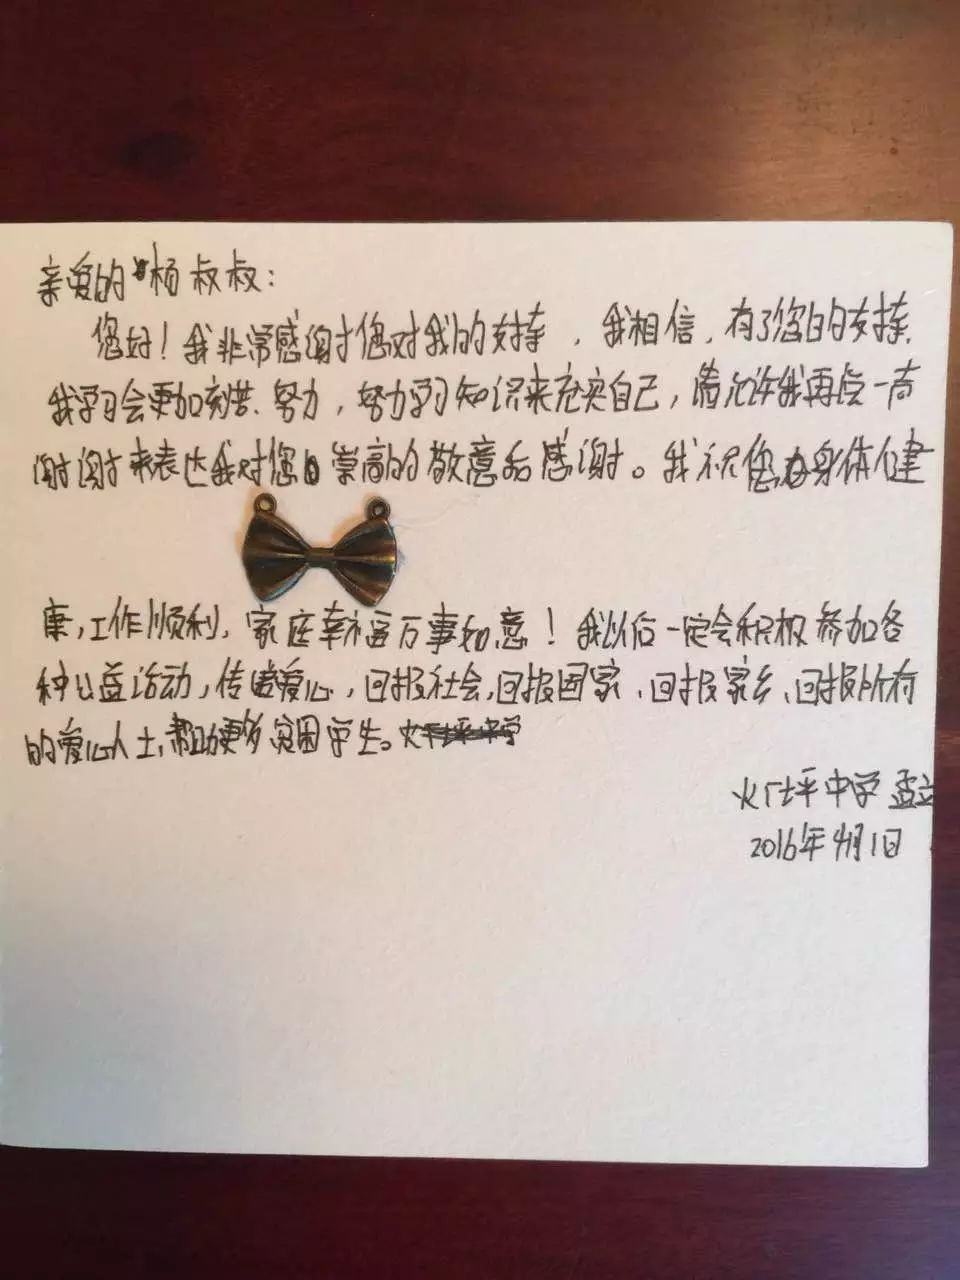 亲爱的杨叔叔：
您好！我非常感谢您对我的支持，我相信，有了您的支持，
我学习会更加刻苦、努力，努力学习知识来充实自己，请允许我再点一声
谢谢来表达我对您崇高的敬意和感谢。我祝您身体健
康，工作顺利，家庭幸福万事如意！我以后一定会积极参加各
种公益活动，传递爱心，回报社会，回报国家、回报家乡、回报所有
的爱心人士，帮助更多贫困学生。
火厂坪中学 孟立
2016年4月1日